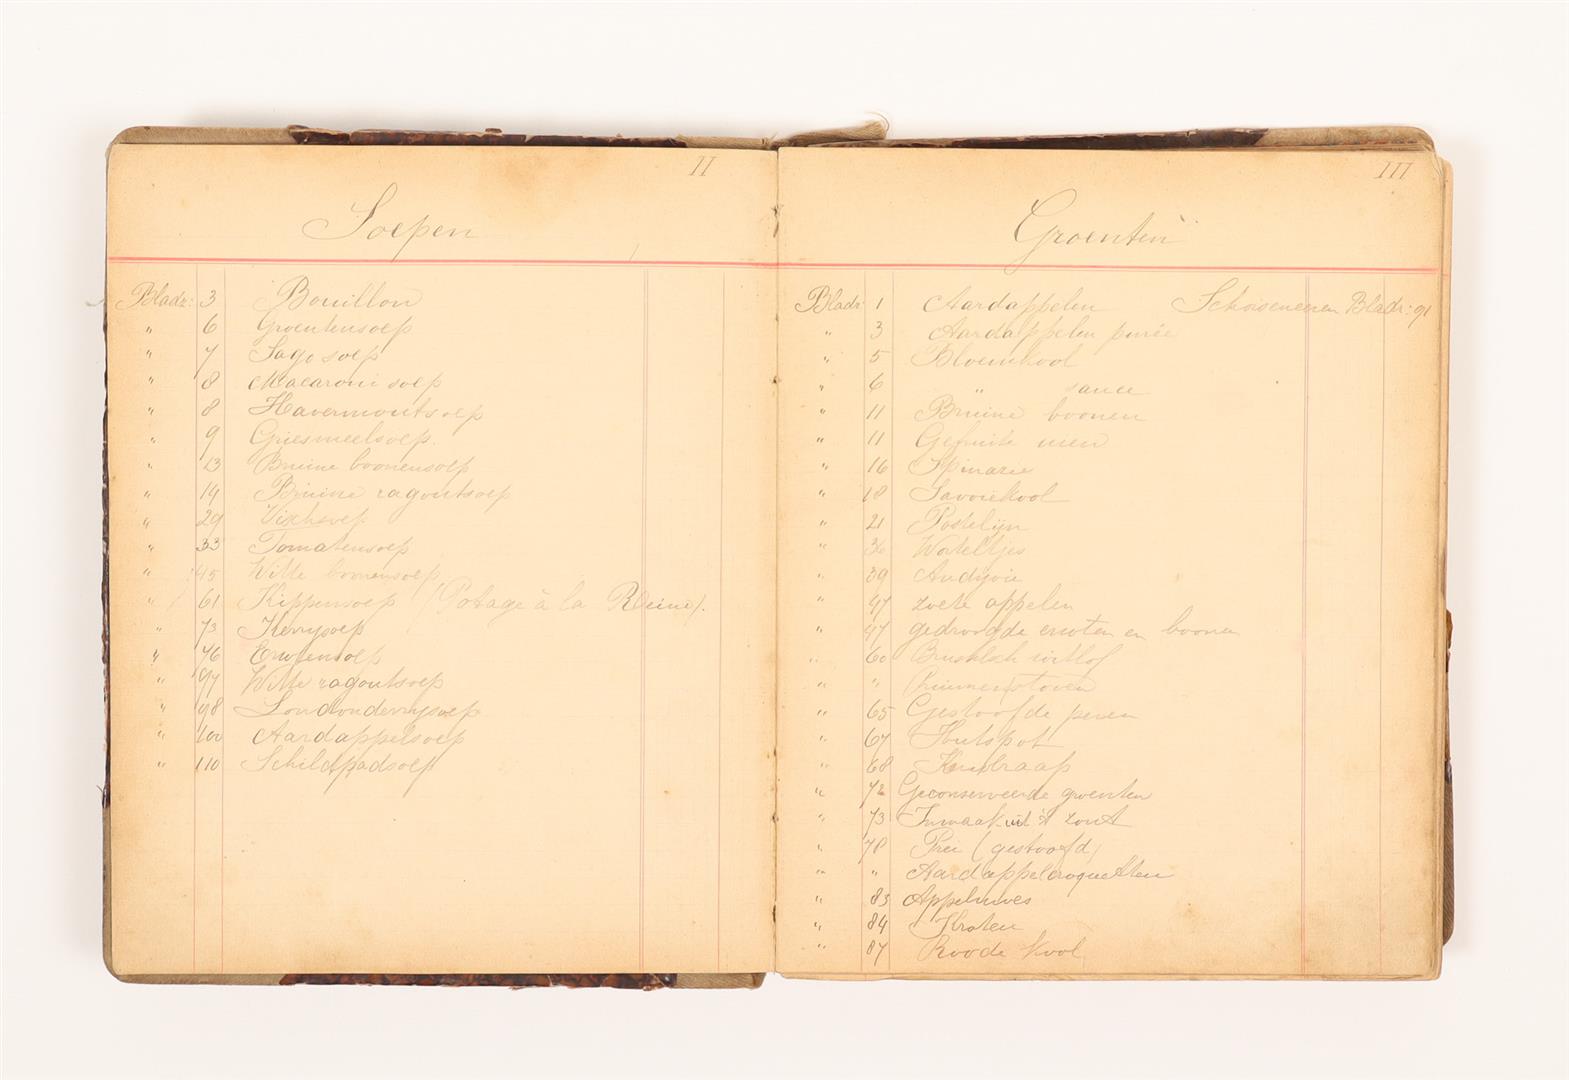 II
Soepen
Bladz: 3 Bouillon
" 6 Groentensoep
" 7 Sago soep
" 8 Macaroni soep
" 8 Havermoutsoep
" 9 Griesmeelsoep.
" 13 Bruine boonensoep
" 14 Bruine ragoutsoep
" 29 Vischsoep
" 33 Tomatensoep
" 45 Witte boonensoep
" 61 Kippensoep (Potage à la Reine).
" 73 Kerrysoep
" 76 Erwtensoep
" 94 Witte ragoutsoep
" 98 Londonderrysoep
" 100 Aardappelsoep
" 110 Schildpadsoep
III
Groenten
Bladz: 1 Aardappelen Schorseneren Bladz: 91
" 3 Aardappelen purée
" 5 Bloemkool
" 6 " sauce
" 11 Bruine boonen
" 11 Gefruite uien
" 16 Spinazie
" 18 Savoiekool
" 21 Postelijn
" 36 Worteltjes
" 39 Andijvie
" 47 zoete appelen
" 47 gedroogde erwten en boonen
" 60 Brusselsch witlof
" " Pruimen stoven
" 65 Gestoofde peren
" 67 Hutspot
" 68 Knolraap
" 72 Geconserveerde groenten
" 73 Inmaak uit 't zout
" 78 Prei (gestoofd)
" " Aardappelcroquetten
" 83 Appelmoes
" 84 Kroten
" 87 Roode kool